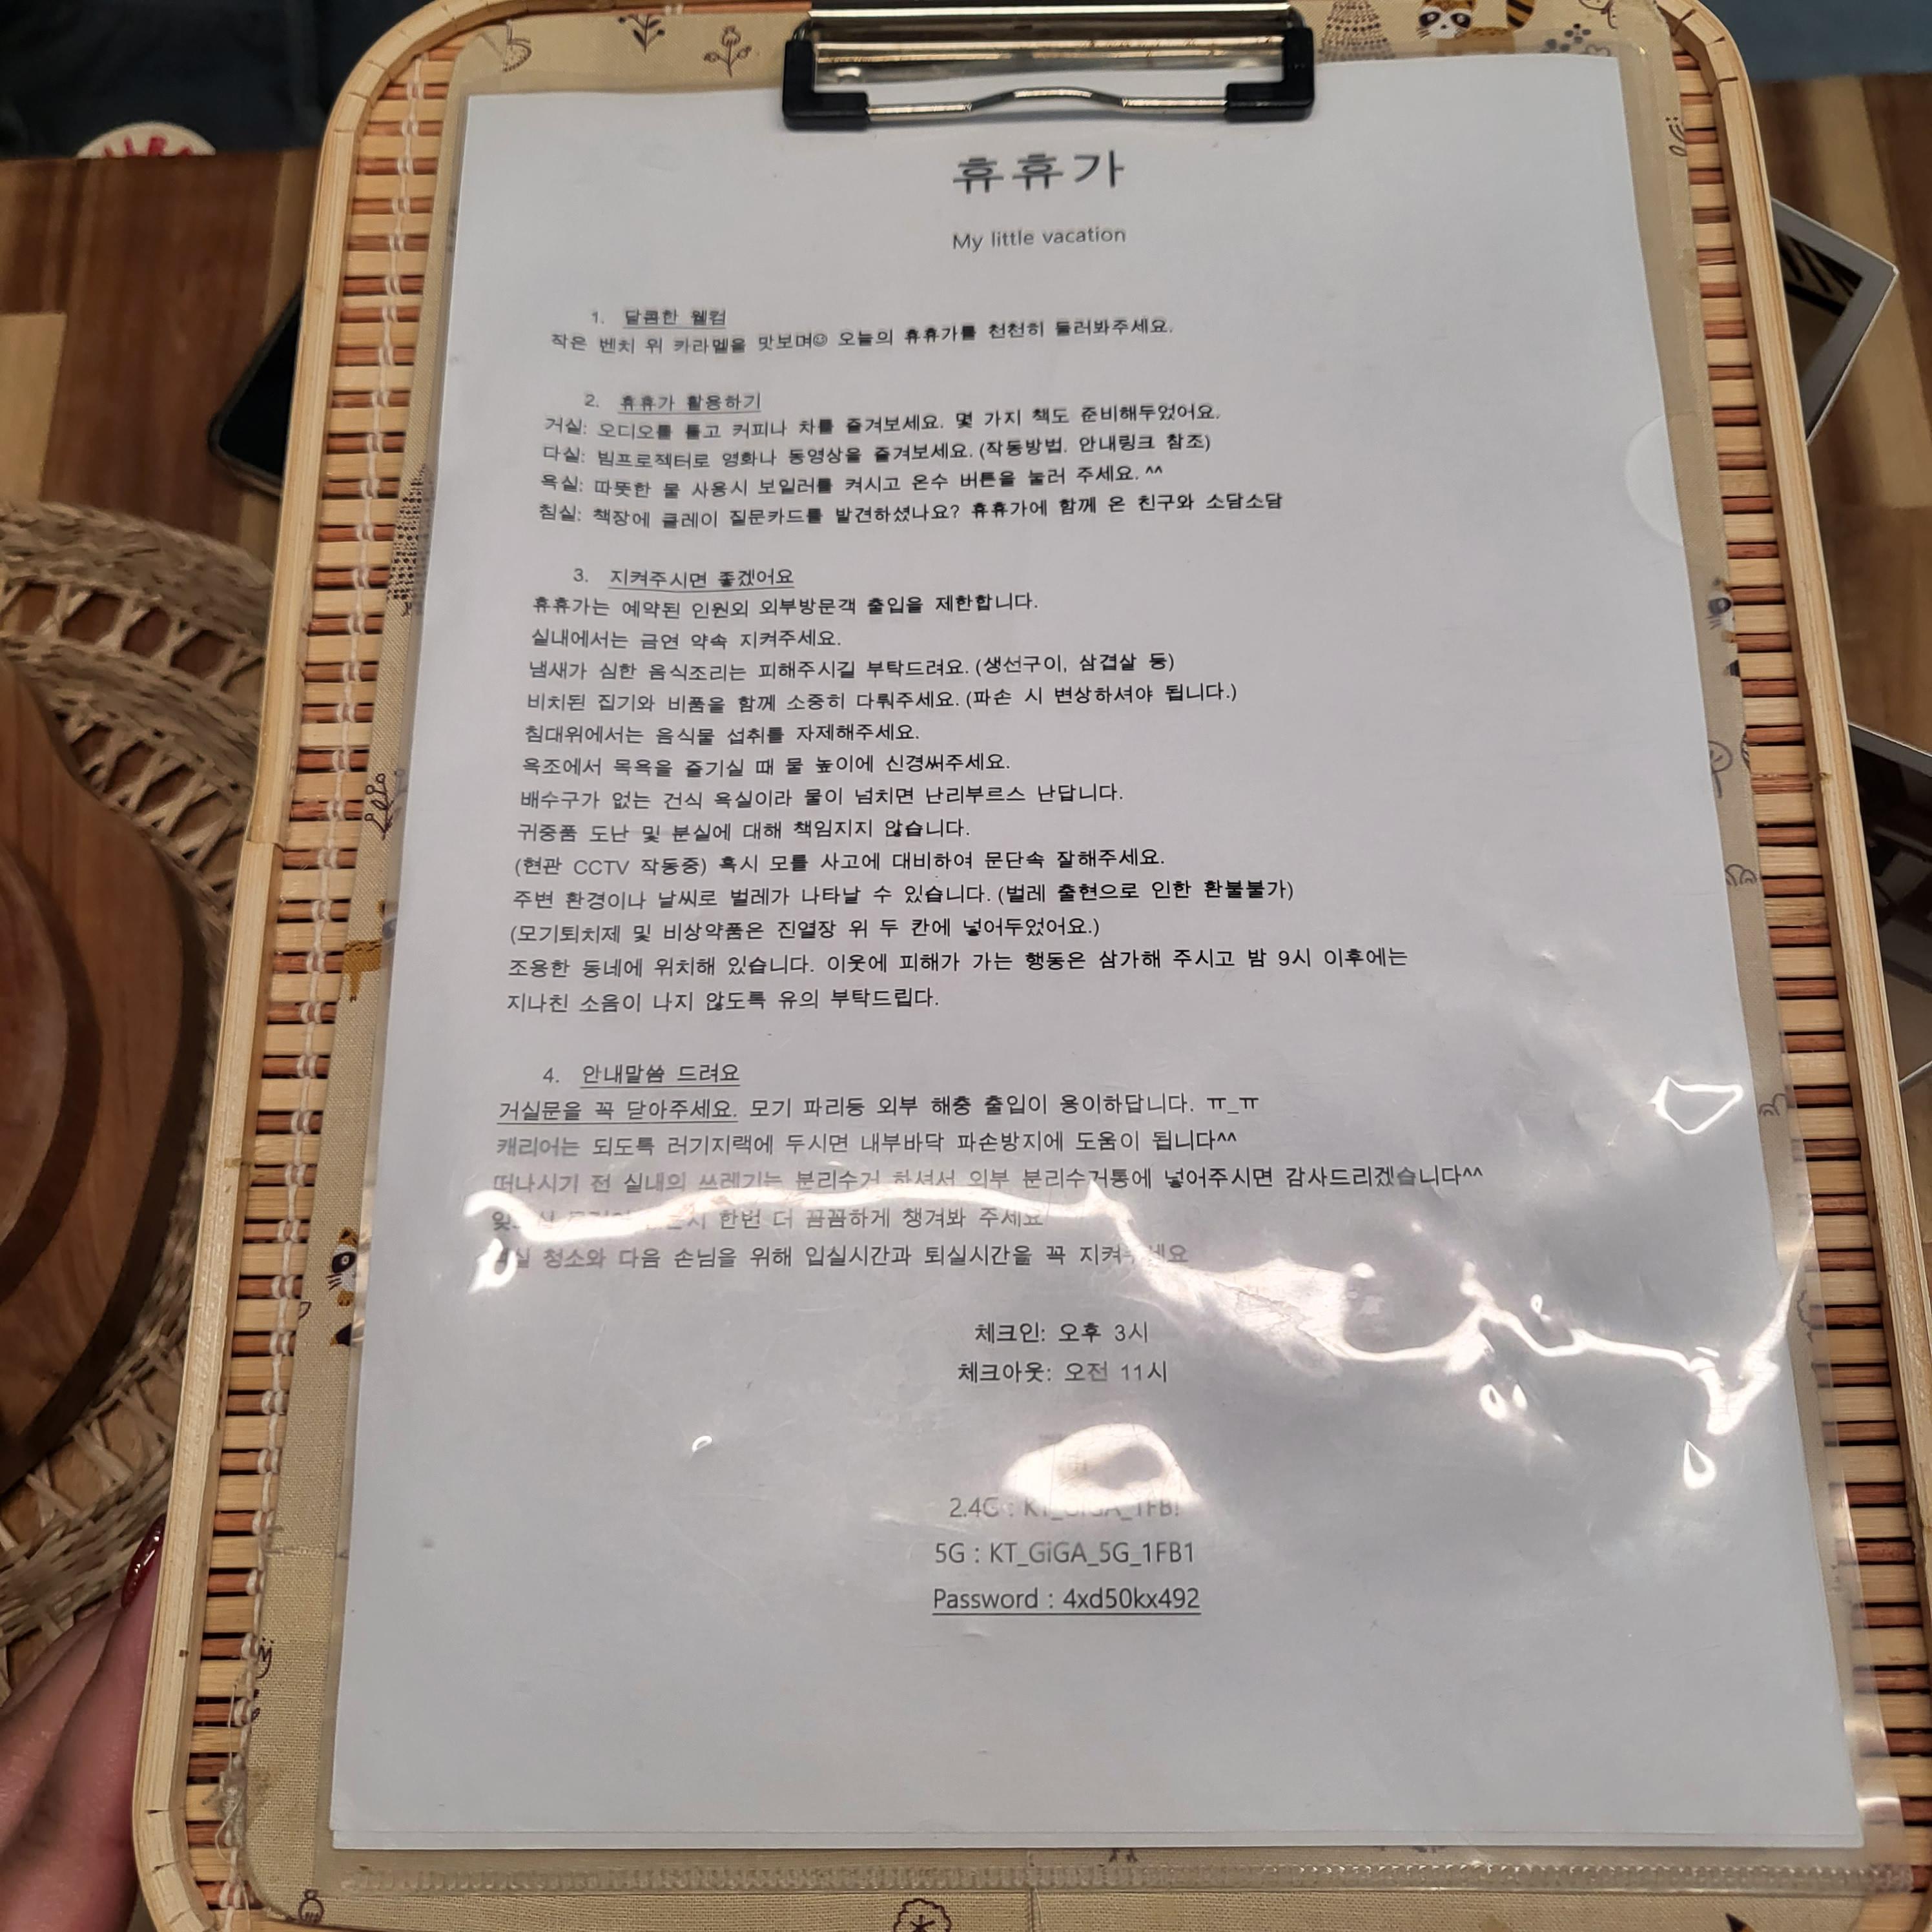 휴휴가
My little vacation
1. 달콤한 웰컴
작은 벤치 위 카라멜을 맛보며☺ 오늘의 휴휴가를 천천히 둘러봐주세요.
2. 휴휴가 활용하기
거실: 오디오를 틀고 커피나 차를 즐겨보세요. 몇 가지 책도 준비해두었어요.
다실: 빔프로젝터로 영화나 동영상을 즐겨보세요. (작동방법. 안내링크 참조)
욕실: 따뜻한 물 사용시 보일러를 켜시고 온수 버튼을 눌러 주세요. ^^
침실: 책장에 클레이 질문카드를 발견하셨나요? 휴휴가에 함께 온 친구와 소담소담
3. 지켜주시면 좋겠어요
휴휴가는 예약된 인원외 외부방문객 출입을 제한합니다.
실내에서는 금연 약속 지켜주세요.
냄새가 심한 음식조리는 피해주시길 부탁드려요. (생선구이, 삼겹살 등)
비치된 집기와 비품을 함께 소중히 다뤄주세요. (파손 시 변상하셔야 됩니다.)
침대위에서는 음식물 섭취를 자제해주세요.
욕조에서 목욕을 즐기실 때 물 높이에 신경써주세요.
배수구가 없는 건식 욕실이라 물이 넘치면 난리부르스 난답니다.
귀중품 도난 및 분실에 대해 책임지지 않습니다.
(현관 CCTV 작동중) 혹시 모를 사고에 대비하여 문단속 잘해주세요.
주변 환경이나 날씨로 벌레가 나타날 수 있습니다. (벌레 출현으로 인한 환불불가)
(모기퇴치제 및 비상약품은 진열장 위 두 칸에 넣어두었어요.)
조용한 동네에 위치해 있습니다. 이웃에 피해가 가는 행동은 삼가해 주시고 밤 9시 이후에는
지나친 소음이 나지 않도록 유의 부탁드립다.
4. 안내말씀 드려요
거실문을 꼭 닫아주세요. 모기 파리등 외부 해충 출입이 용이하답니다. ㅠ_ㅠ
캐리어는 되도록 러기지랙에 두시면 내부바닥 파손방지에 도움이 됩니다^^
떠나시기 전 실내의 쓰레기는 분리수거 하셔서 외부 분리수거통에 넣어주시면 감사드리겠습니다^^
한번 더 꼼꼼하게 챙겨봐 주세요
청소와 다음 손님을 위해 입실시간과 퇴실시간을 꼭
체크인: 오후 3시
체크아웃: 오전 11시
2.4G :
5G : KT_GiGA_5G_1FB1
Password : 4xd50kx492